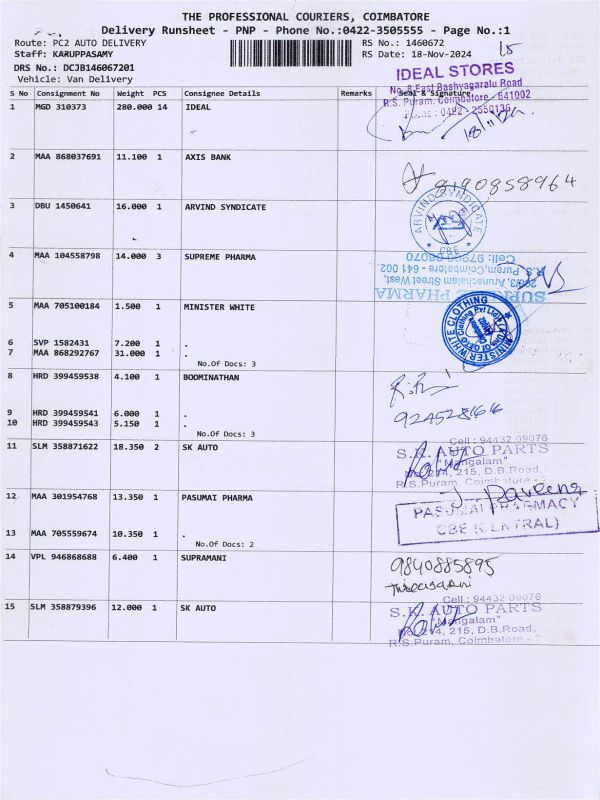 THE PROFESSIONAL COURIERS, COIMBATORE
Delivery Runsheet - PNP - Phone No.:0422-3505555 - Page No.:1
Route: PC2 AUTO DELIVERY
RS No.: 1460672
15
Staff: KARUPPASAMY
RS Date: 18-Nov-2024
DRS No.: DCJB146067201
Vehicle: Van Delivery
S No Consignment No Weight PCS Consignee Details Remarks Seal & Signature
1 MGD 310373 280.000 14 IDEAL
IDEAL STORES
No. 8 East Bashyagaralu Road
R.S. Puram, Coimbatore - 641002
Phone: 0422 - 2550136
2 MAA 868037691 11.100 1 AXIS BANK
8190858964
3 DBU 1450641 16.000 1 ARVIND SYNDICATE
ARVIND SYNDICATE
CBE
4 MAA 104558798 14.000 3 SUPREME PHARMA
PHARMA
Arunachalam Street West,
R.S. Puram, Coimbatore - 641 002.
5 MAA 705100184 1.500 1 MINISTER WHITE
MINISTER WHITE CLOTHING
6 SVP 1582431 7.200 1 .
7 MAA 868292767 31.000 1 .
No.Of Docs: 3
8 HRD 399459538 4.100 1 BOOMINATHAN
9 HRD 399459541 6.000 1 .
10 HRD 399459543 5.150 1 .
No.Of Docs: 3
11 SLM 358871622 18.350 2 SK AUTO
Cell : 94432 09076
S.K. AUTO PARTS
"Mangalam"
214, 215, D.B.Road,
R.S.Puram, Coimbatore -
12 MAA 301954768 13.350 1 PASUMAI PHARMA
J. Praveena
PASUMAI PHARMACY
CBE (CENTRAL)
13 MAA 705559674 10.350 1 .
No.Of Docs: 2
14 VPL 946868688 6.400 1 SUPRAMANI
9840885895
15 SLM 358879396 12.000 1 SK AUTO
Cell : 94432 09076
S.K. AUTO PARTS
"Mangalam"
214, 215, D.B.Road,
R.S.Puram, Coimbatore -